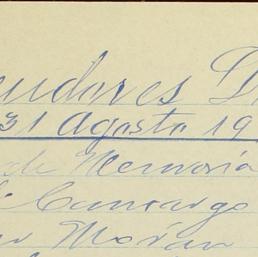 eudores D
31 agosto 19
de Memoria
Camargo
Morán